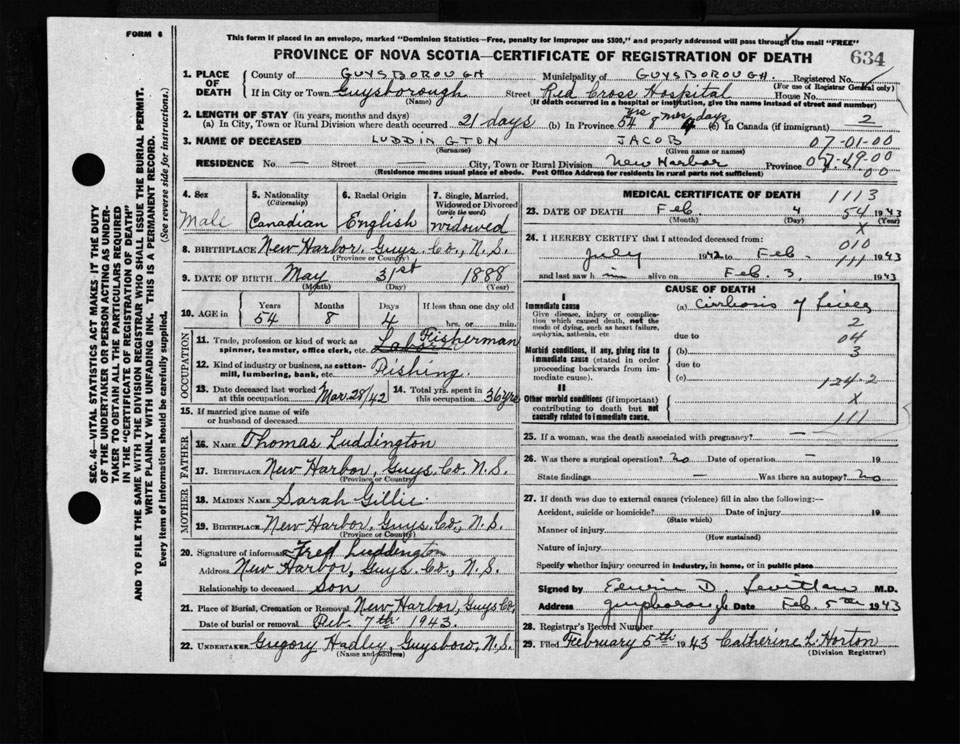 FORM 6
This form if placed in an envelope, marked "Dominion Statistics—Free, penalty for improper use $300," and properly addressed will pass through the mail "FREE"
PROVINCE OF NOVA SCOTIA—CERTIFICATE OF REGISTRATION OF DEATH
634
SEC. 46—VITAL STATISTICS ACT MAKES IT THE DUTY
OF THE UNDERTAKER OR PERSON ACTING AS UNDER-
TAKER TO OBTAIN ALL THE PARTICULARS REQUIRED
IN THE "CERTIFICATE OF REGISTRATION OF DEATH"
AND TO FILE THE SAME WITH THE DIVISION REGISTRAR WHO SHALL ISSUE THE BURIAL PERMIT.
WRITE PLAINLY WITH UNFADING INK. THIS IS A PERMANENT RECORD.
Every item of information should be carefully supplied. (See reverse side for instructions.)
1. PLACE OF DEATH
County of GUYSBOROUGH Municipality of GUYSBOROUGH. Registered No.
(For use of Registrar General only)
If in City or Town Guysborough Street Red Cross Hospital House No.
(Name) (If death occurred in a hospital or institution, give the name instead of street and number)
2. LENGTH OF STAY (in years, months and days)
(a) In City, Town or Rural Division where death occurred 21 days (b) In Province 54 yrs 8 mos 4 days (c) In Canada (if immigrant) 2
3. NAME OF DECEASED LUDDINGTON JACOB 07-01-00
(Surname) (Given name or names)
RESIDENCE No. — Street — City, Town or Rural Division New Harbor Province 07-49-00
00
(Residence means usual place of abode. Post Office Address for residents in rural parts not sufficient)
4. Sex
Male
5. Nationality
(Citizenship)
Canadian
6. Racial Origin
English
7. Single, Married,
Widowed or Divorced
(write the word)
Widowed
8. BIRTHPLACE New Harbor, Guys. Co., N.S.
(Province or Country)
9. DATE OF BIRTH May 31st 1888
(Month) (Day) (Year)
10. AGE
Years Months Days If less than one day old
54 8 4 hrs. or min.
OCCUPATION
11. Trade, profession or kind of work as Fisherman
spinner, teamster, office clerk, etc.
12. Kind of industry or business, as cotton-
mill, lumbering, bank, etc. Fishing
13. Date deceased last worked
at this occupation Mar. 28/42
14. Total yrs. spent in
this occupation 36 yrs
15. If married give name of wife
or husband of deceased
FATHER
16. NAME Thomas Luddington
17. BIRTHPLACE New Harbor, Guys. Co. N.S.
(Province or Country)
MOTHER
18. MAIDEN NAME Sarah Gillie
19. BIRTHPLACE New Harbor, Guys. Co., N.S.
(Province or Country)
20. Signature of informant Fred Luddington
Address New Harbor, Guys. Co., N.S.
Relationship to deceased Son
21. Place of Burial, Cremation or Removal New Harbor, Guys Co.
Date of burial or removal Feb. 7th 1943.
22. UNDERTAKER Gregory Hadley, Guysboro, N.S.
(Name and address)
MEDICAL CERTIFICATE OF DEATH 1113
23. DATE OF DEATH Feb. 4 54 1943
(Month) (Day) (Year)
x
24. I HEREBY CERTIFY that I attended deceased from:
010
July 1942 to Feb. 111 1943
and last saw h im alive on Feb. 3. 1943
CAUSE OF DEATH
I
Immediate cause
Give disease, injury or complica-
tion which caused death, not the
mode of dying, such as heart failure,
asphyxia, asthenia, etc
(a) Cirrhosis of Liver
2
due to 04
Morbid conditions, if any, giving rise to
immediate cause (stated in order
proceeding backwards from im-
mediate cause).
(b) 3
due to
(c) 124-2
II
Other morbid conditions (if important)
contributing to death but not
causally related to immediate cause.
x
111
25. If a woman, was the death associated with pregnancy? —
26. Was there a surgical operation? No Date of operation — 19
State findings — Was there an autopsy? No
27. If death was due to external causes (violence) fill in also the following:—
Accident, suicide or homicide? Date of injury 19
(State which)
Manner of injury
(How sustained)
Nature of injury
Specify whether injury occurred in industry, in home, or in public place
Signed by D. M.D.
Address Guysborough Date Feb. 5th 1943
28. Registrar's Record Number
29. Filed February 5th 1943 Catherine L. Horton
(Division Registrar)